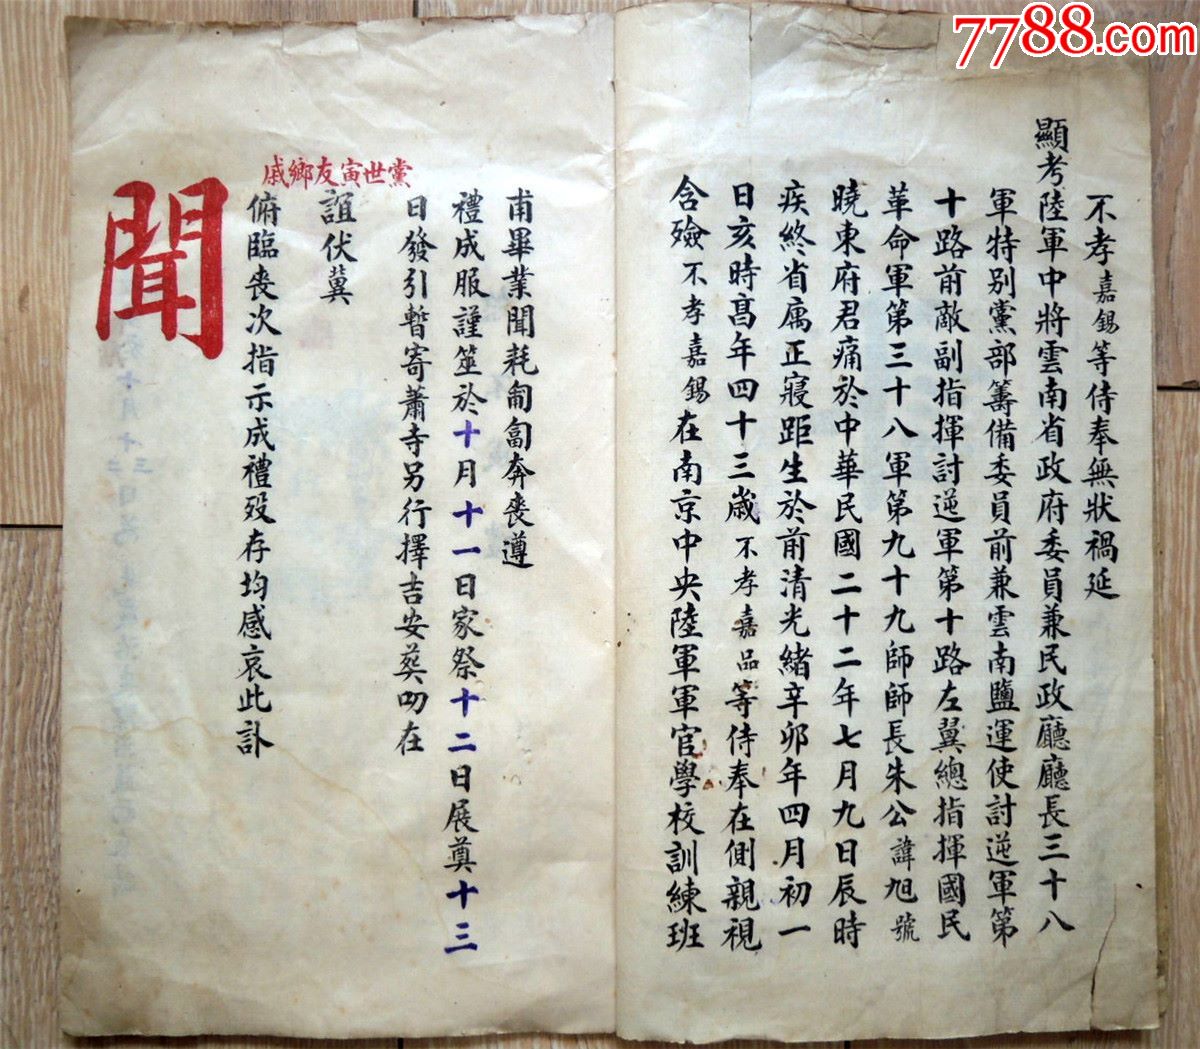 7788.com
不孝嘉錫等侍奉無狀禍延
顯考陸軍中將雲南省政府委員兼民政廳廳長三十八
軍特別黨部籌備委員前兼雲南鹽運使討逆軍第
十路前敵副指揮討逆軍第十路左翼總指揮國民
革命軍第三十八軍第九十九師師長朱公諱旭號
曉東府君痛於中華民國二十二年七月九日辰時
疾終省寓正寢距生於前清光緒辛卯年四月初一
日亥時享年四十三歲不孝嘉品等侍奉在側親視
含殮不孝嘉錫在南京中央陸軍軍官學校訓練班
甫畢業聞耗匍匐奔喪遵
禮成服謹筮於十月十一日家祭十二日展奠十三
日發引暫寄蕭寺另行擇吉安葬叨在
戚鄉友寅世黨
誼伏冀
俯臨喪次指示成禮歿存均感哀此訃
聞